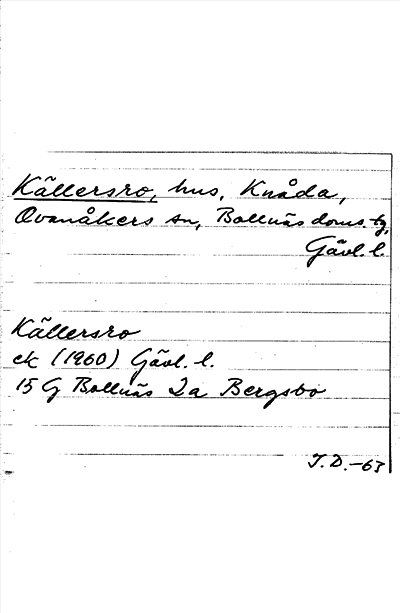 Källersro, hus, Knåda,
Ovanåkers sn, Bollnäs doms.tg,
Gävl. l.
Källersro
ek (1960) Gävl. l.
15 G Bollnäs 2a Bergsbo
J.D.-63